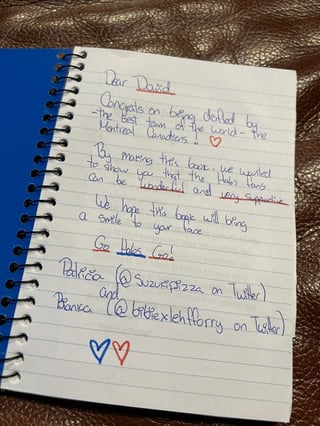 Dear David
Congrats on being drafted by
the best team of the world - the
Montreal Canadiens!
By making this book, we wanted
to show you that the Habs fans
can be wonderful and very supportive
We hope this book will bring
a smile to your face
Go Habs Go!
Patricia (@suzuepizza on Twitter)
and
Bianca (@bibiexlehfforry on Twitter)